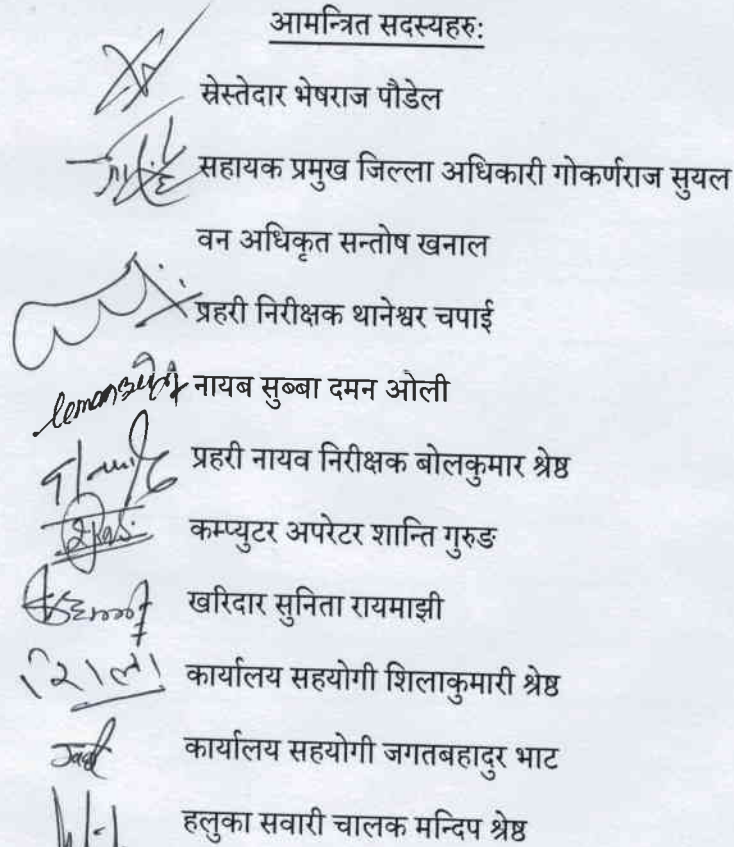 आमन्त्रित सदस्यहरु:
स्रेस्तेदार भेषराज पौडेल
सहायक प्रमुख जिल्ला अधिकारी गोकर्णराज सुयल
वन अधिकृत सन्तोष खनाल
प्रहरी निरीक्षक थानेश्वर चपाई
नायब सुब्बा दमन ओली
प्रहरी नायव निरीक्षक बोलकुमार श्रेष्ठ
कम्प्युटर अपरेटर शान्ति गुरुङ
खरिदार सुनिता रायमाझी
शिला कार्यालय सहयोगी शिलाकुमारी श्रेष्ठ
कार्यालय सहयोगी जगतबहादुर भाट
हलुका सवारी चालक मन्दिप श्रेष्ठ